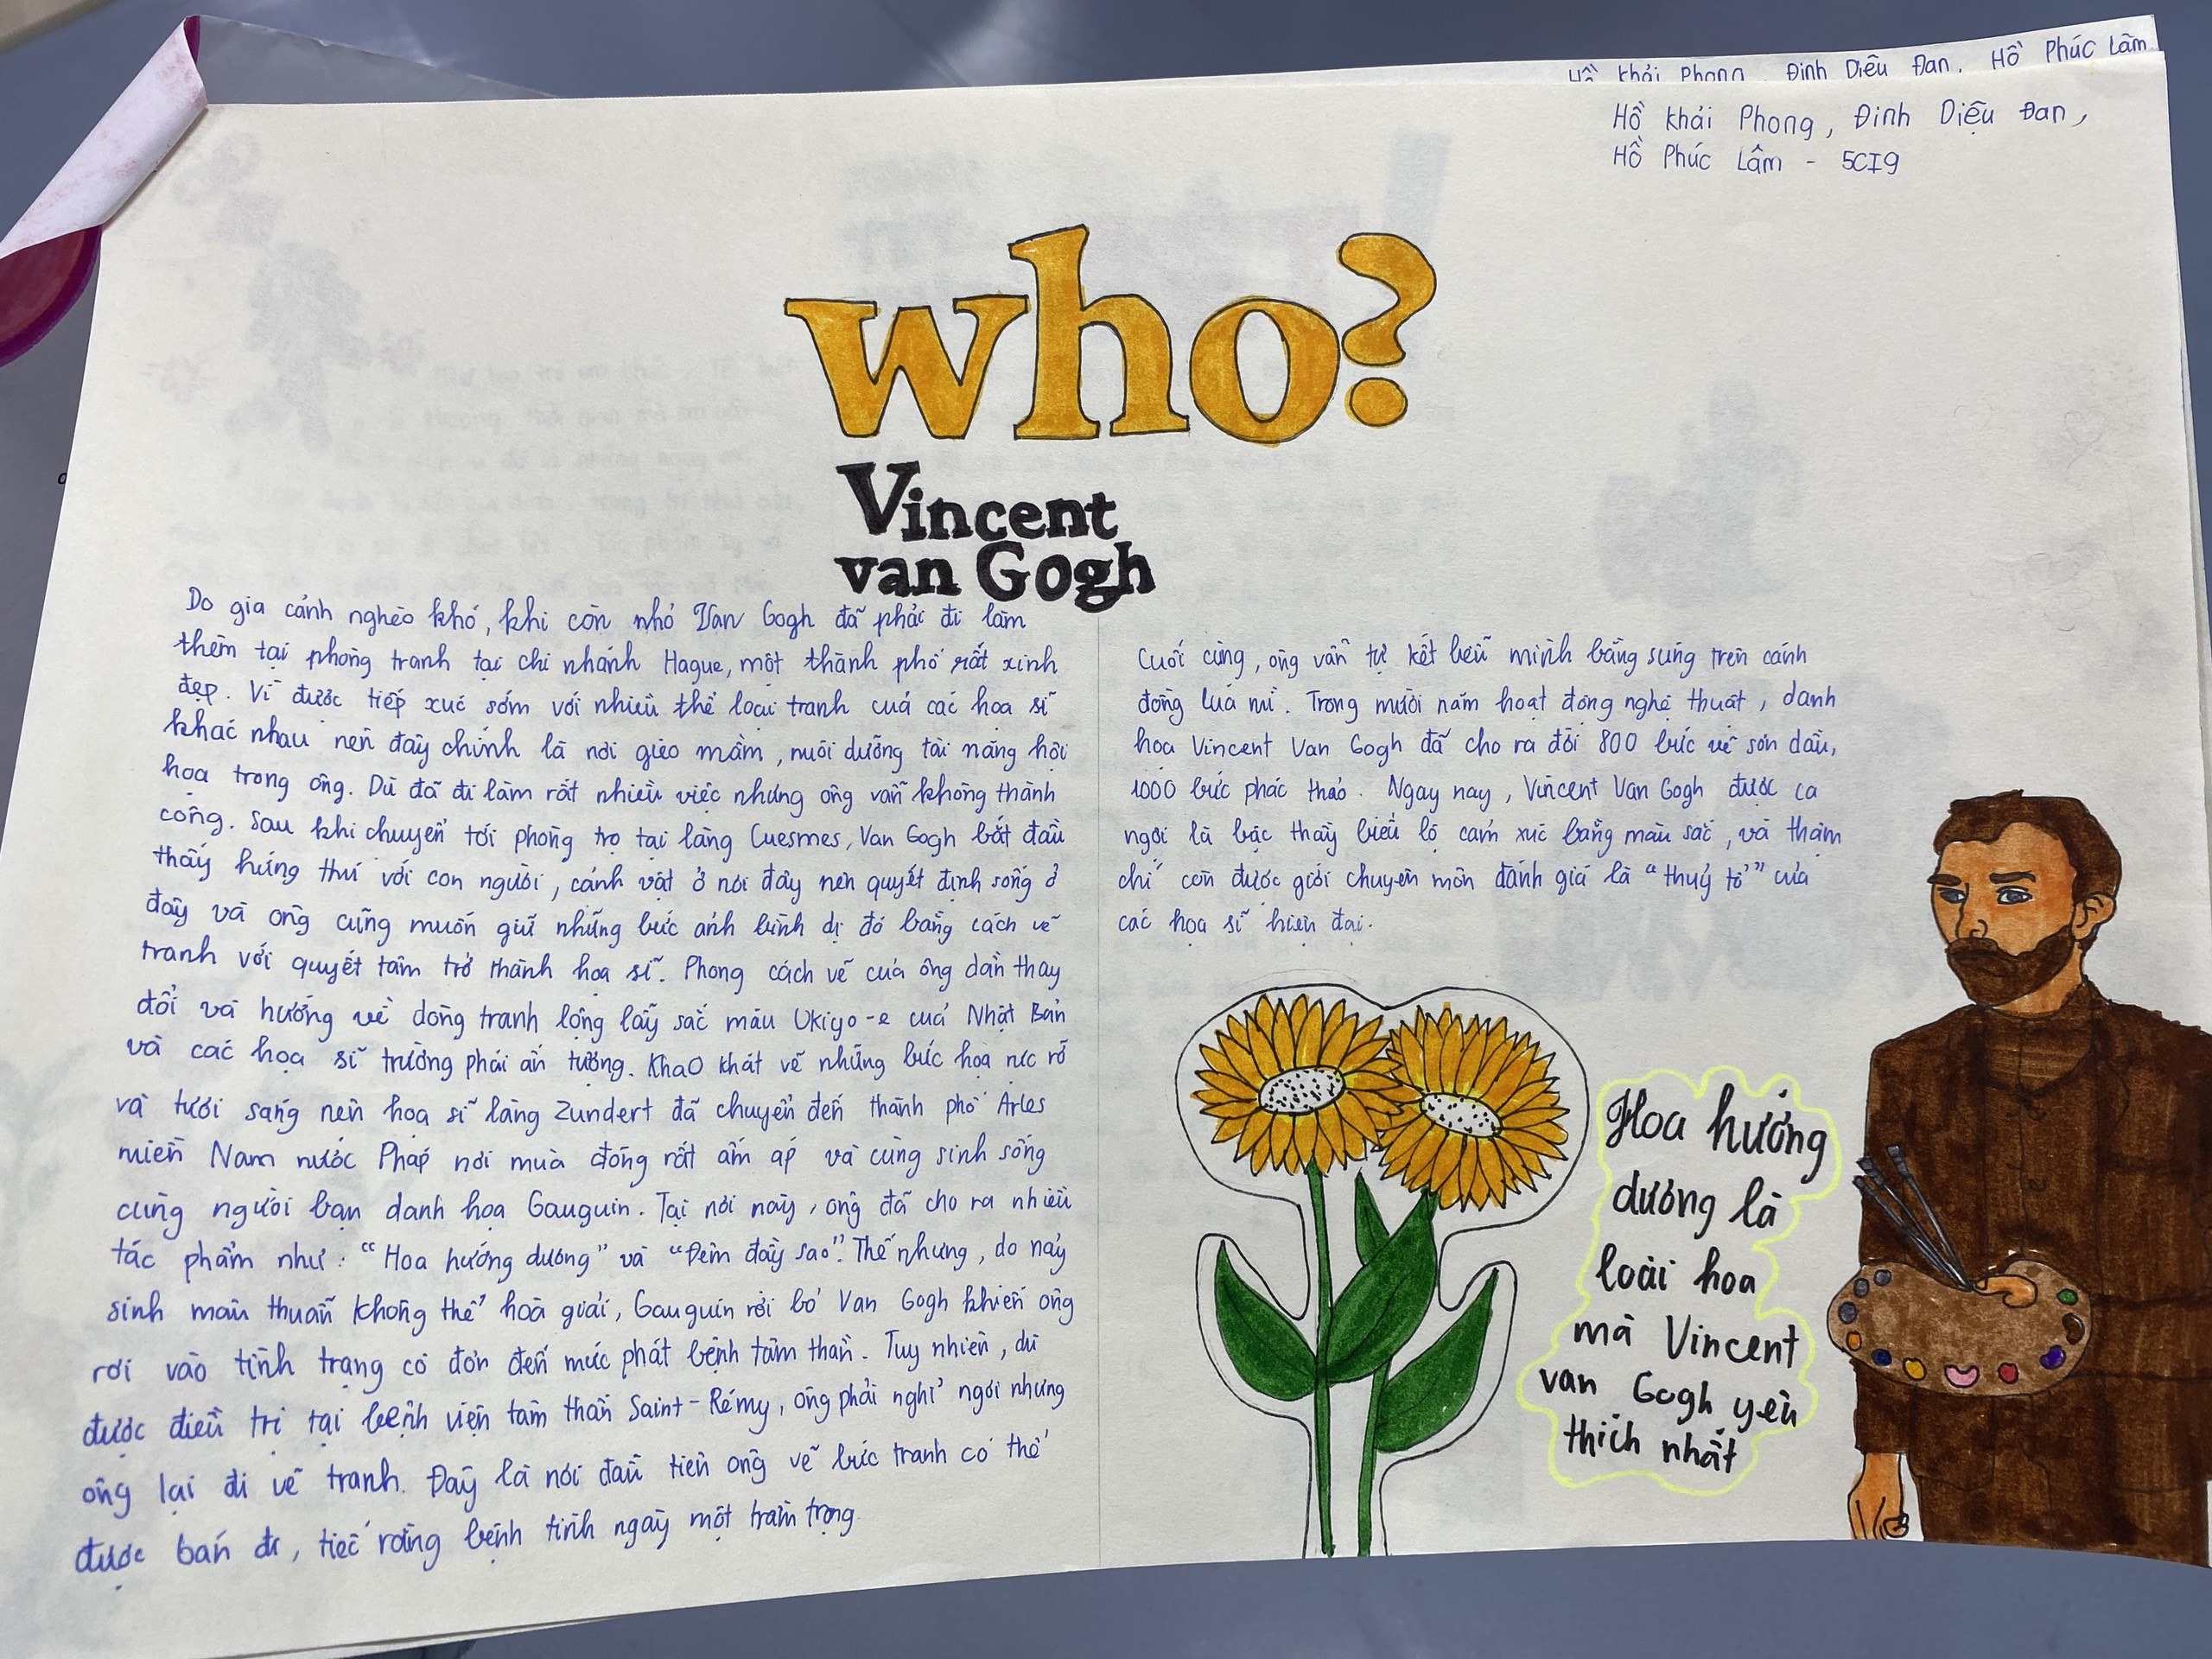 Hồ Khải Phong, Đinh Diệu Đan, Hồ Phúc Lâm
Hồ Khải Phong, Đinh Diệu Đan,
Hồ Phúc Lâm - 5CI9
who?
Vincent
van Gogh
Do gia cảnh nghèo khó, khi còn nhỏ Van Gogh đã phải đi làm
thêm tại phòng tranh tại chi nhánh Hague, một thành phố rất xinh
đẹp. Vì được tiếp xúc sớm với nhiều thể loại tranh của các họa sĩ
khác nhau nên đây chính là nơi gieo mầm, nuôi dưỡng tài năng hội
họa trong ông. Dù đã đi làm rất nhiều việc nhưng ông vẫn không thành
công. Sau khi chuyển tới phòng trọ tại làng Cuesmes, Van Gogh bắt đầu
thấy hứng thú với con người, cảnh vật ở nơi đây nên quyết định sống ở
đây và ông cũng muốn giữ những bức ảnh bình dị đó bằng cách vẽ
tranh với quyết tâm trở thành họa sĩ. Phong cách vẽ của ông dần thay
đổi và hướng về dòng tranh lộng lẫy sắc màu Ukiyo-e của Nhật Bản
và các họa sĩ trường phái ấn tượng. Khao khát vẽ những bức họa rực rỡ
và tươi sáng nên họa sĩ làng Zundert đã chuyển đến thành phố Arles
miền Nam nước Pháp nơi mùa đông rất ấm áp và cùng sinh sống
cùng người bạn danh họa Gauguin. Tại nơi này, ông đã cho ra nhiều
tác phẩm như: "Hoa hướng dương" và "Đêm đầy sao". Thế nhưng, do nảy
sinh mâu thuẫn không thể hoà giải, Gauguin rời bỏ Van Gogh khiến ông
rơi vào tình trạng cô đơn đến mức phát bệnh tâm thần. Tuy nhiên, dù
được điều trị tại bệnh viện tâm thần Saint-Rémy, ông phải nghỉ ngơi nhưng
ông lại đi vẽ tranh. Đây là nơi đầu tiên ông vẽ bức tranh có thể
được bán đi, tiếc rằng bệnh tình ngày một trầm trọng
Cuối cùng, ông vẫn tự kết liễu mình bằng súng trên cánh
đồng lúa mì. Trong mười năm hoạt động nghệ thuật, danh
họa Vincent Van Gogh đã cho ra đời 800 bức vẽ sơn dầu,
1000 bức phác thảo. Ngày nay, Vincent Van Gogh được ca
ngợi là bậc thầy biểu lộ cảm xúc bằng màu sắc, và thậm
chí còn được giới chuyên môn đánh giá là "thuỷ tổ" của
các họa sĩ hiện đại.
Hoa hướng
dương là
loài hoa
mà Vincent
van Gogh yêu
thích nhất